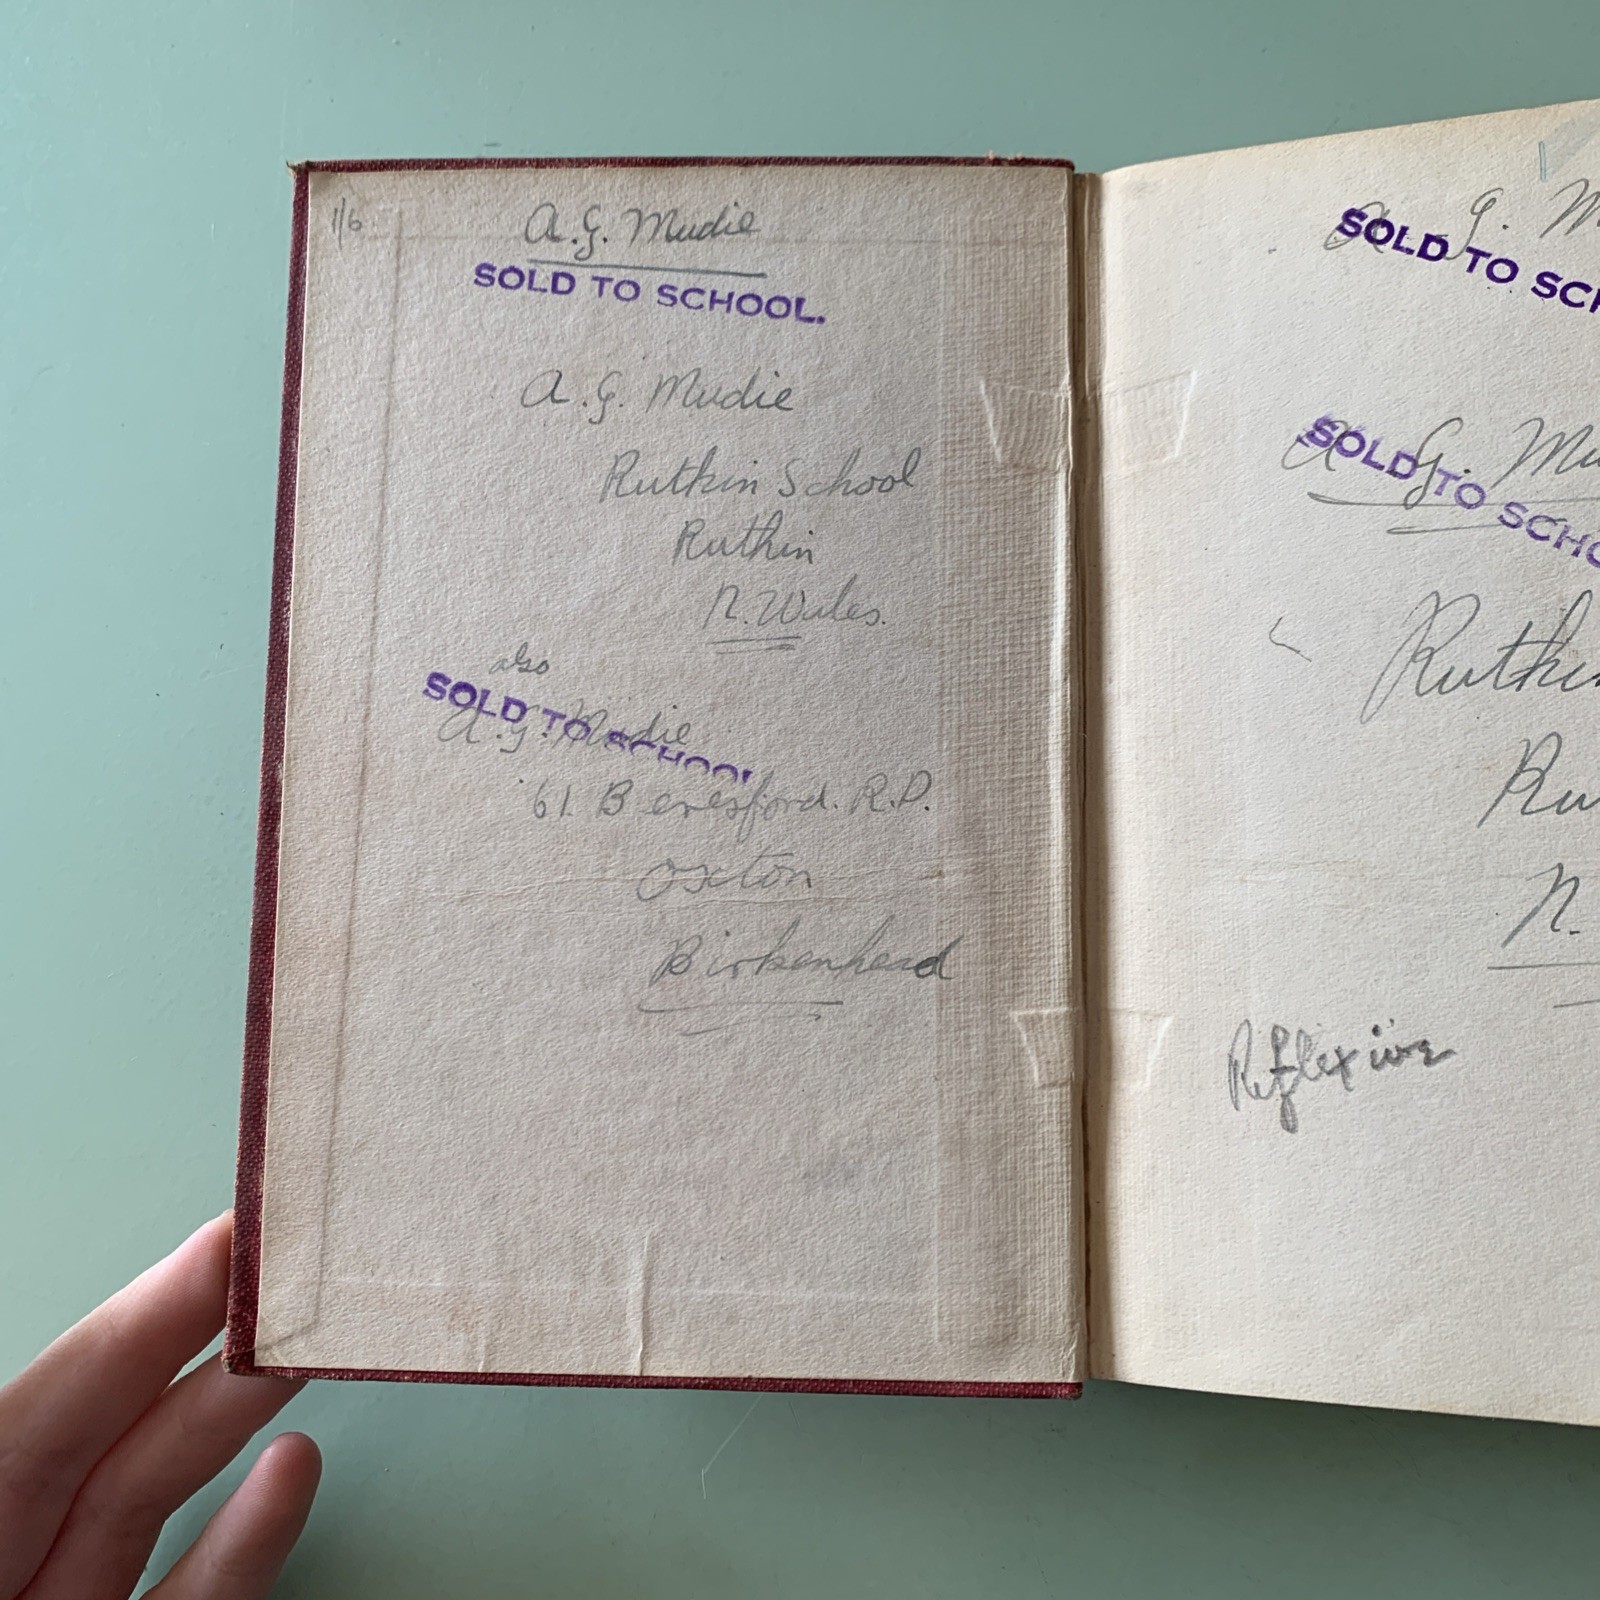 1/6
A.G. Mudie
SOLD TO SCHOOL.
A.G. Mudie
Ruthin School
Ruthin
N. Wales.
also
SOLD TO SCHOOL
A.G. Mudie
61. Beresford. R.D.
Oxton
Birkenhead
G. M
SOLD TO SCH
A. G. Mu
SOLD TO SCHO
Ruthin
Ru
N.
Reflexive